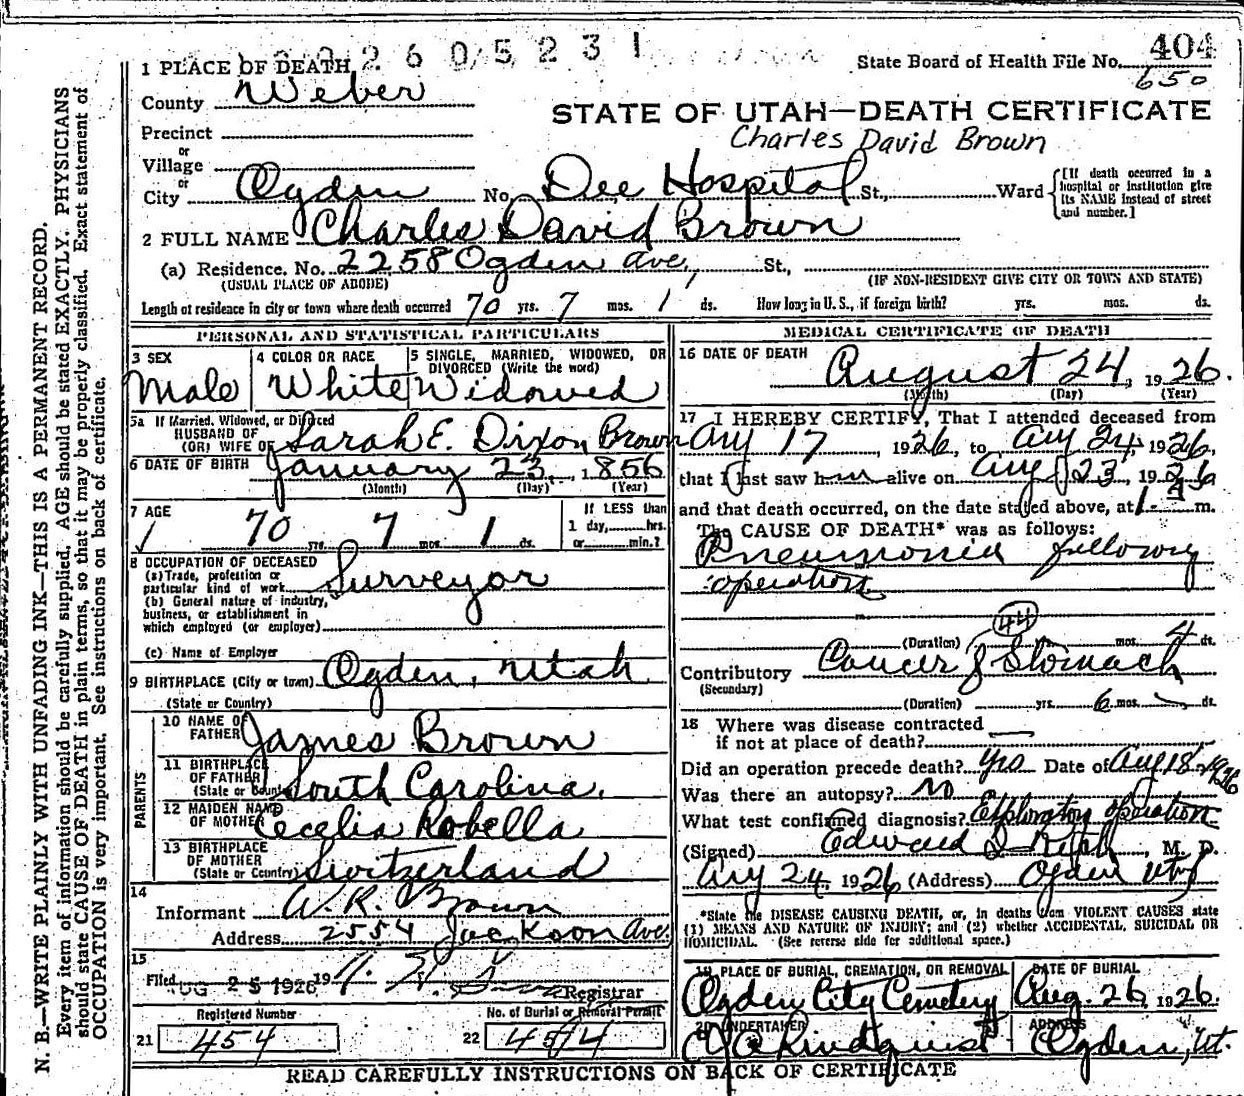 2 6 0 5 2 3 1
404
State Board of Health File No.
650
1 PLACE OF DEATH
County Weber
STATE OF UTAH—DEATH CERTIFICATE
Charles David Brown
Precinct
or
Village
or
City Ogden No. Dee Hospital St., Ward [If death occurred in a hospital or institution give its NAME instead of street and number.]
2 FULL NAME Charles David Brown
(a) Residence. No. 2258 Ogden Ave, St.,
(USUAL PLACE OF ABODE) (IF NON-RESIDENT GIVE CITY OR TOWN AND STATE)
Length of residence in city or town where death occurred 70 yrs. 7 mos. 1 ds. How long in U. S., if foreign birth? yrs. mos. ds.
PERSONAL AND STATISTICAL PARTICULARS
3 SEX
Male
4 COLOR OR RACE
White
5 SINGLE, MARRIED, WIDOWED, OR DIVORCED (Write the word)
Widowed
5a If Married, Widowed, or Divorced
HUSBAND OF
(OR) WIFE OF Sarah E. Dixon Brown
6 DATE OF BIRTH January 23, 1856
(Month) (Day) (Year)
7 AGE
70 yrs. 7 mos. 1 ds.
If LESS than
1 day, hrs.
or min.?
8 OCCUPATION OF DECEASED
(a) Trade, profession or
particular kind of work Surveyor
(b) General nature of industry,
business, or establishment in
which employed (or employer)
(c) Name of Employer
9 BIRTHPLACE (City or town) Ogden, Utah
(State or Country)
PARENTS
10 NAME OF
FATHER James Brown
11 BIRTHPLACE
OF FATHER
(State or Country) South Carolina.
12 MAIDEN NAME
OF MOTHER Cecelia Robella
13 BIRTHPLACE
OF MOTHER
(State or Country) Switzerland
14
Informant A. R. Brown
Address 2554 Jackson Ave.
15
Filed AUG 25 1926 19
Registrar
Registered Number
21 454
No. of Burial or Removal Permit
22 454
MEDICAL CERTIFICATE OF DEATH
16 DATE OF DEATH
August 24, 1926.
(Month) (Day) (Year)
17 I HEREBY CERTIFY, That I attended deceased from
Aug 17, 1926, to Aug 24, 1926,
that I last saw him alive on Aug 23, 1926
and that death occurred, on the date stated above, at m.
The CAUSE OF DEATH* was as follows:
Pneumonia following
operation
44
(Duration) mos. 4 ds.
Contributory Cancer of Stomach
(Secondary)
(Duration) yrs. 6 mos. ds.
18 Where was disease contracted
if not at place of death?
Did an operation precede death? Yes Date of Aug 18-1926
Was there an autopsy? No
What test confirmed diagnosis? Exploratory operation
(Signed) Edward I. Rich, M. D.
Aug 24, 1926 (Address) Ogden Utah
*State the DISEASE CAUSING DEATH, or, in deaths from VIOLENT CAUSES state
(1) MEANS AND NATURE OF INJURY; and (2) whether ACCIDENTAL, SUICIDAL OR
HOMICIDAL. (See reverse side for additional space.)
19 PLACE OF BURIAL, CREMATION, OR REMOVAL
Ogden City Cemetery
DATE OF BURIAL
Aug. 26, 1926.
20 UNDERTAKER
Lindquist
ADDRESS
Ogden, Ut.
READ CAREFULLY INSTRUCTIONS ON BACK OF CERTIFICATE
N. B.—WRITE PLAINLY WITH UNFADING INK—THIS IS A PERMANENT RECORD.
Every item of information should be carefully supplied. AGE should be stated EXACTLY. PHYSICIANS
should state CAUSE OF DEATH in plain terms, so that it may be properly classified. Exact statement of
OCCUPATION is very important. See instructions on back of certificate.